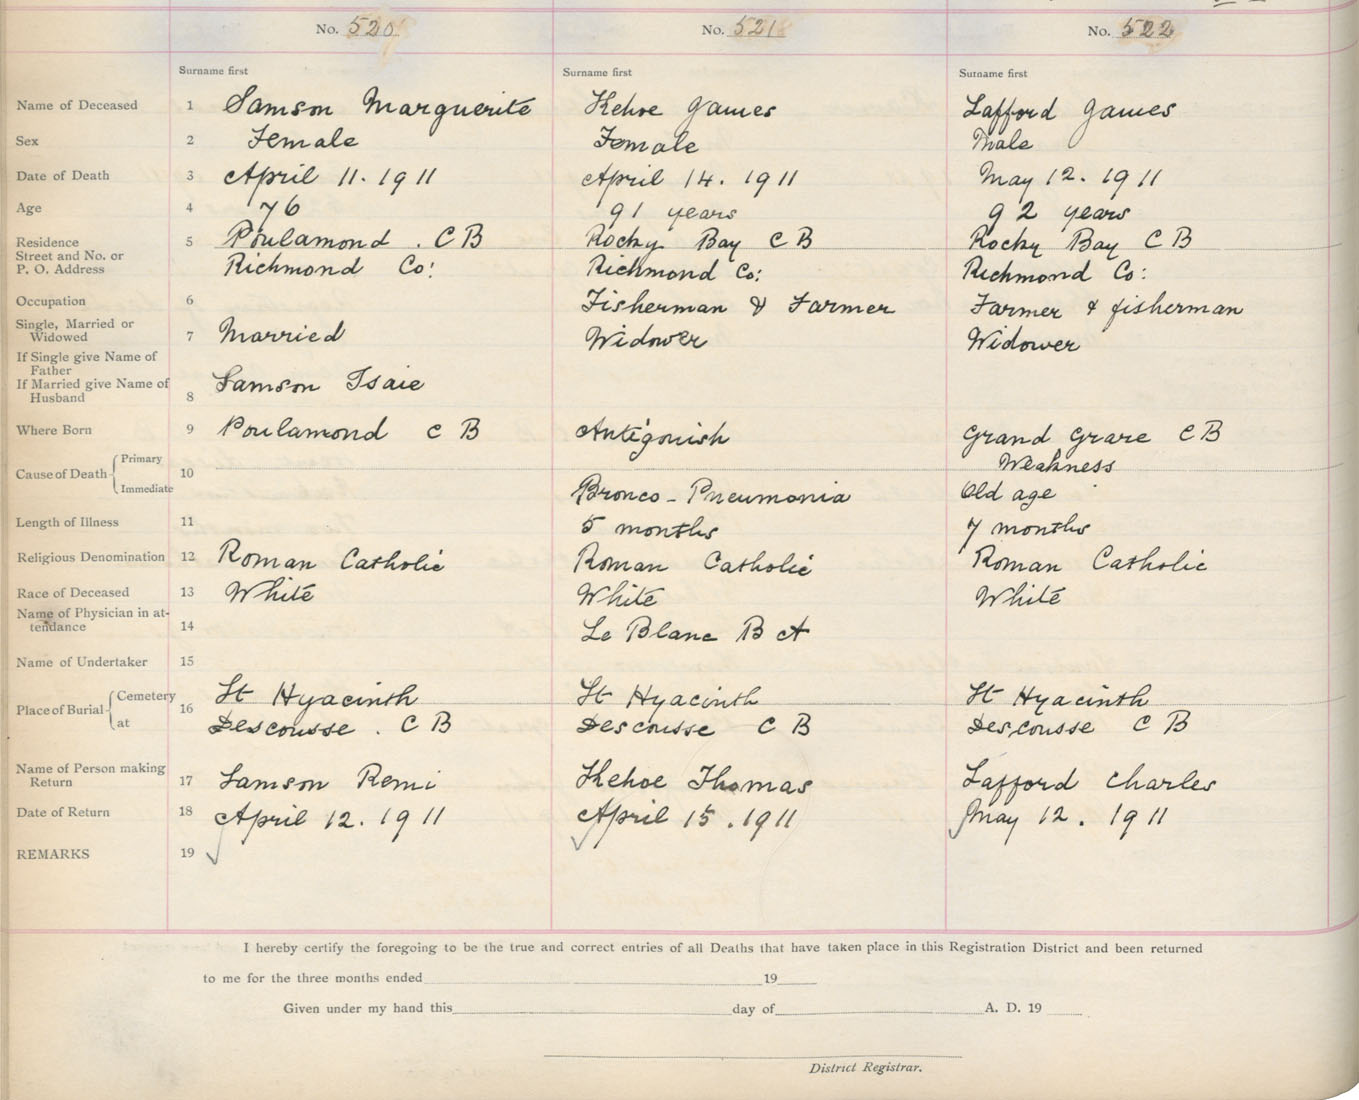 No. 520 No. 521 No. 522
Surname first Surname first Surname first
Name of Deceased 1 Samson Marguerite Kehoe James Lafford James
Sex 2 Female Female Male
Date of Death 3 April 11. 1911 April 14. 1911 May 12. 1911
Age 4 76 91 years 92 years
Residence 5 Poulamond . C B Rocky Bay C B Rocky Bay C B
Street and No. or
P. O. Address Richmond Co: Richmond Co: Richmond Co:
Occupation 6 Fisherman & Farmer Farmer & fisherman
Single, Married or
Widowed 7 Married Widower Widower
If Single give Name of
Father
If Married give Name of Samson Isaie
Husband 8
Where Born 9 Poulamond C B Antigonish Grand Grare C B
Cause of Death Primary 10 Weakness
Immediate Bronco-Pneumonia Old age
Length of Illness 11 5 months 7 months
Religious Denomination 12 Roman Catholic Roman Catholic Roman Catholic
Race of Deceased 13 White White White
Name of Physician in at-
tendance 14 Le Blanc B A
Name of Undertaker 15
Place of Burial Cemetery 16 St Hyacinth St Hyacinth St Hyacinth
at Descousse . C B Descousse C B Descousse C B
Name of Person making
Return 17 Samson Remi Kehoe Thomas Lafford Charles
Date of Return 18 April 12. 1911 April 15. 1911 May 12. 1911
REMARKS 19
I hereby certify the foregoing to be the true and correct entries of all Deaths that have taken place in this Registration District and been returned
to me for the three months ended 19
Given under my hand this day of A. D. 19
District Registrar.